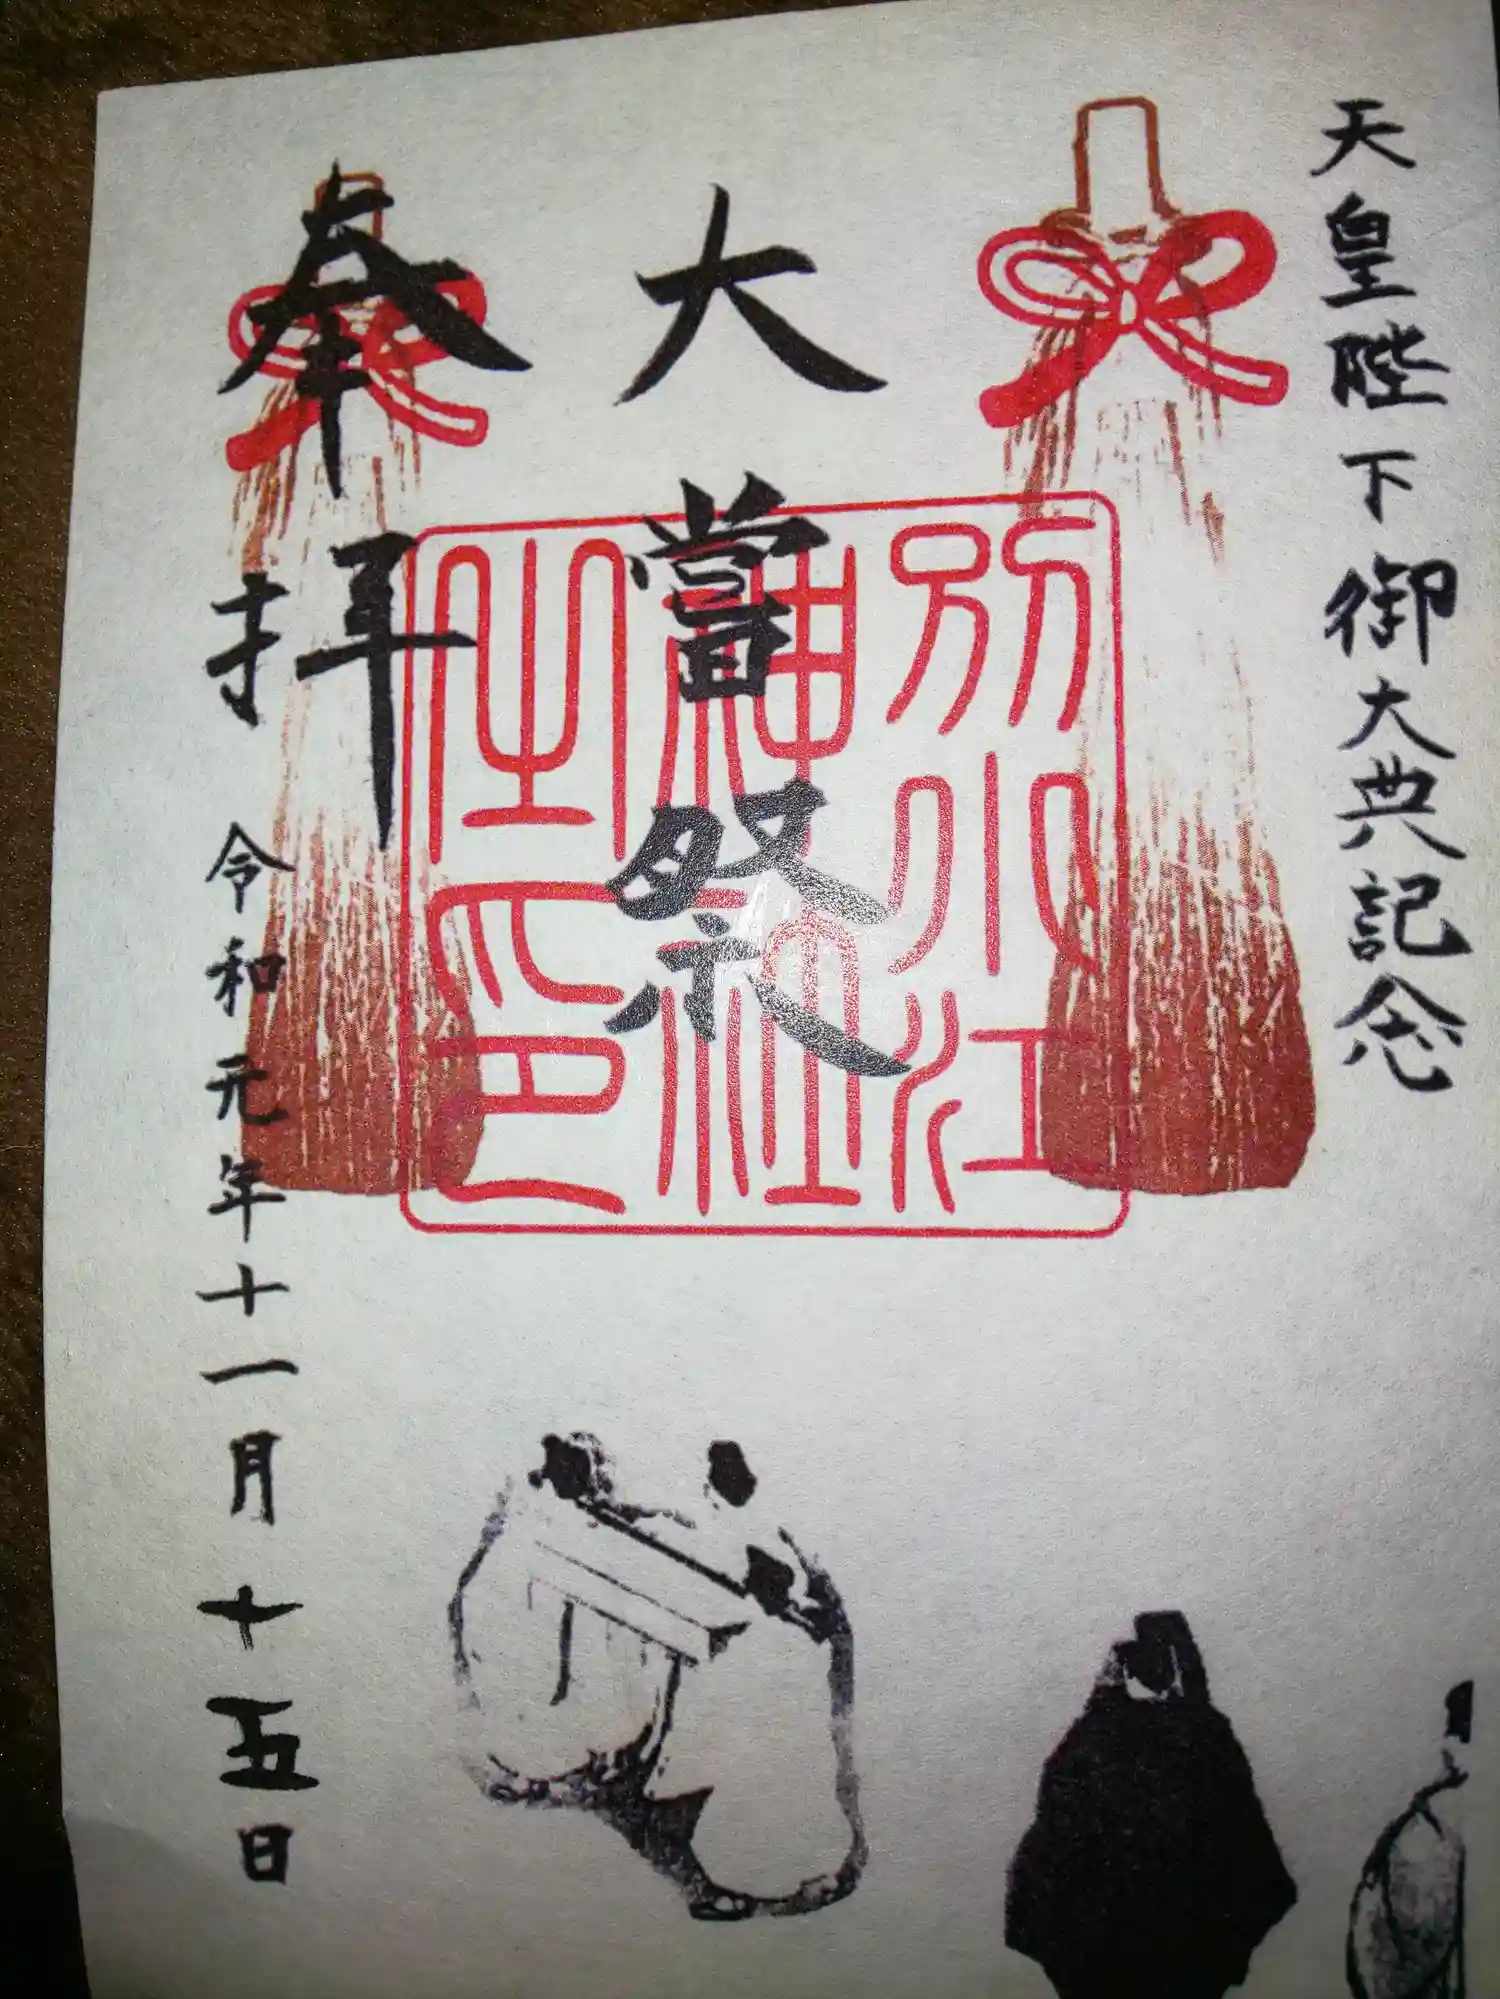 天皇陛下御大典記念
大嘗祭
別小江神社之印
奉拝
令和元年十一月十五日